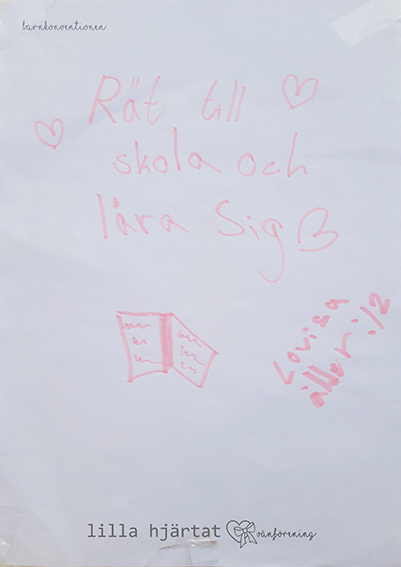 barnkonventionen
Rät till
skola och
lära sig
Lovisa
ålder: 12
lilla hjärtat vänförening